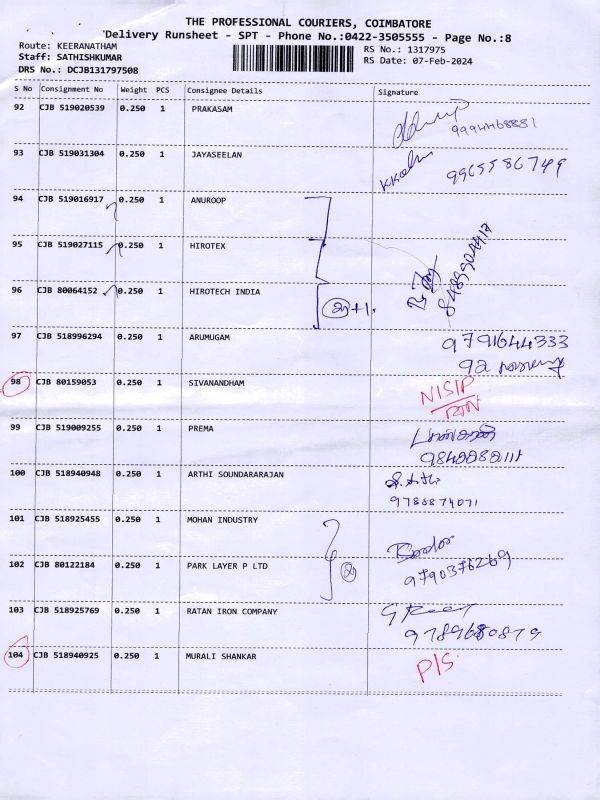 THE PROFESSIONAL COURIERS, COIMBATORE
Delivery Runsheet - SPT - Phone No.:0422-3505555 - Page No.:8
Route: KEERANATHAM
RS No.: 1317975
Staff: SATHISHKUMAR
RS Date: 07-Feb-2024
DRS No.: DCJB131797508
S No Consignment No Weight PCS Consignee Details Signature
92 CJB 519020539 0.250 1 PRAKASAM
9994468881
93 CJB 519031304 0.250 1 JAYASEELAN
9965586749
94 CJB 519016917 0.250 1 ANUROOP
95 CJB 519027115 0.250 1 HIROTEX
8489904417
96 CJB 80064152 0.250 1 HIROTECH INDIA
97 CJB 518996294 0.250 1 ARUMUGAM 9791644333
98 CJB 80159053 0.250 1 SIVANANDHAM
NISIP
99 CJB 519009255 0.250 1 PREMA
100 CJB 518940948 0.250 1 ARTHI SOUNDARARAJAN
9788874071
101 CJB 518925455 0.250 1 MOHAN INDUSTRY
102 CJB 80122184 0.250 1 PARK LAYER P LTD
9790376269
103 CJB 518925769 0.250 1 RATAN IRON COMPANY
9789680879
104 CJB 518940925 0.250 1 MURALI SHANKAR P/S